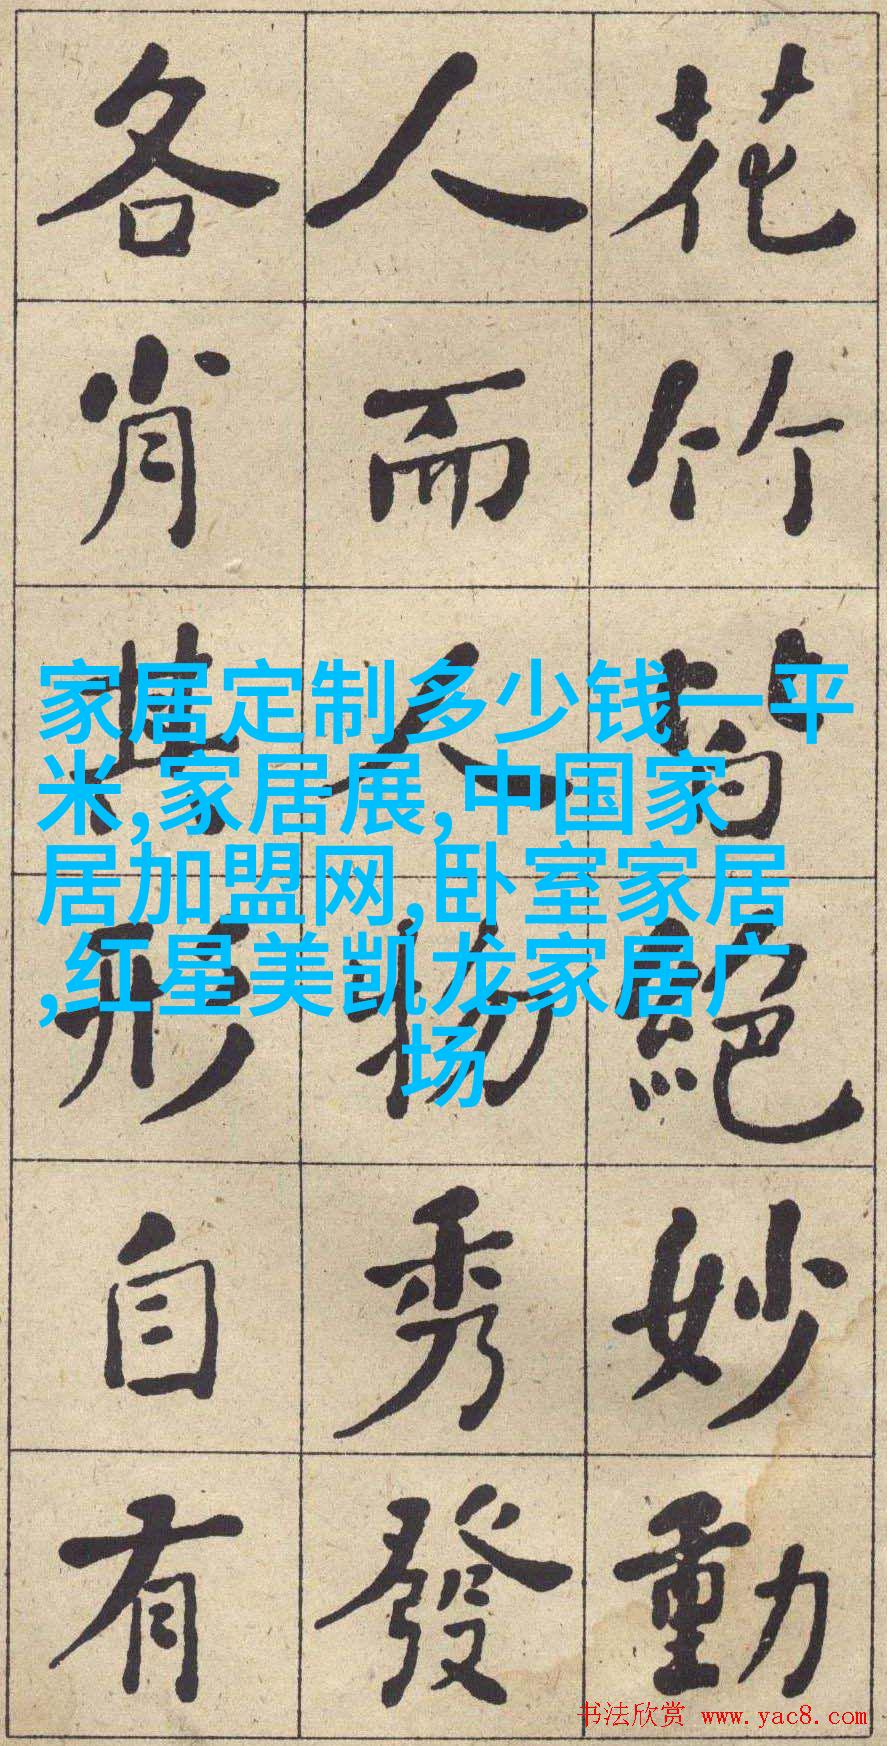 花竹皆絕妙動
人而人物秀發
各肖其形自有
家居定制多少钱一平
米,家居展,中国家
居加盟网,卧室家居
,红星美凯龙家居广
场
书法欣赏 www.yac8.com